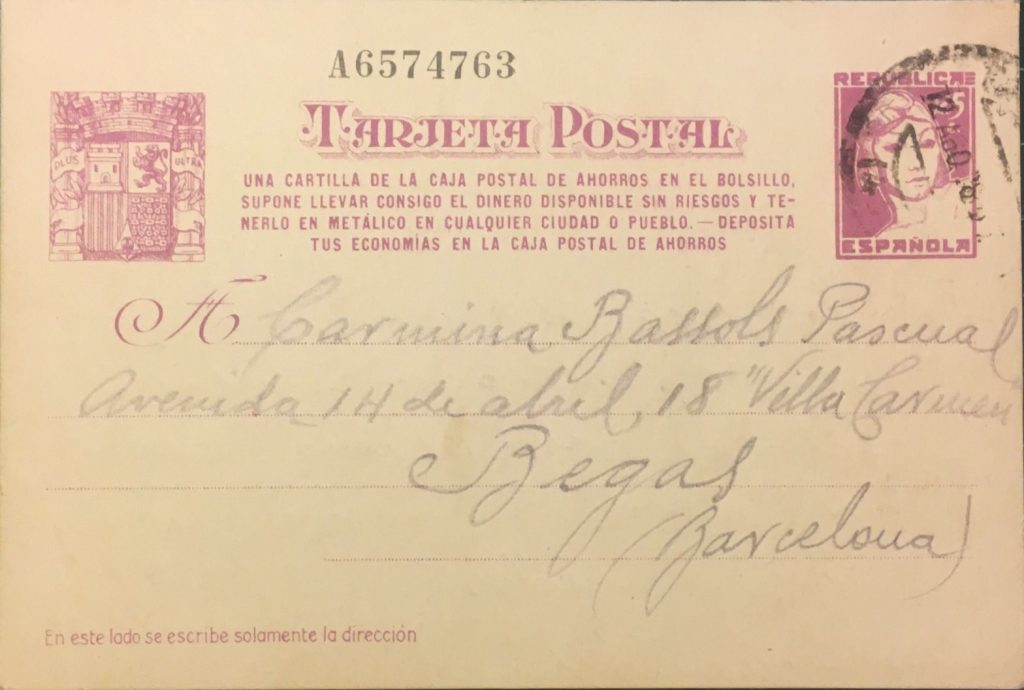 A6574763
TARJETA POSTAL
PLUS ULTRA
UNA CARTILLA DE LA CAJA POSTAL DE AHORROS EN EL BOLSILLO,
SUPONE LLEVAR CONSIGO EL DINERO DISPONIBLE SIN RIESGOS Y TE-
NERLO EN METÁLICO EN CUALQUIER CIUDAD O PUEBLO.—DEPOSITA
TUS ECONOMÍAS EN LA CAJA POSTAL DE AHORROS
REPUBLICA
ESPAÑOLA
A Carmina Bassols Pascual
Avenida 14 de abril, 18 "Villa Carmen
Begas
(Barcelona)
En este lado se escribe solamente la dirección